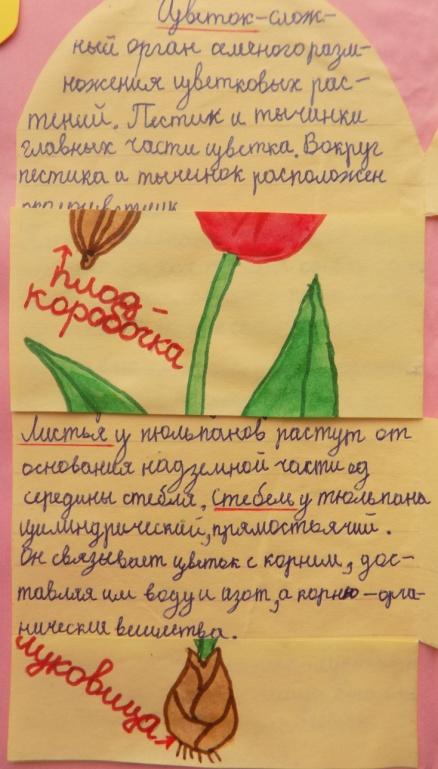 Цветок-слож-
ный орган семеного разм-
ножения цветковых рас-
тений. Пестик и тычинки
главных части цветка. Вокруг
пестика и тычинок расположен
плод-
коробочка
Листья у тюльпанов растут от
основания надземной части до
середины стебля. Стебель у тюльпана
цилиндрический, прямостоячий.
Он связывает цветок с корнем, дос-
тавляя им воду и азот, а корню-орга-
нические вещества.
луковица